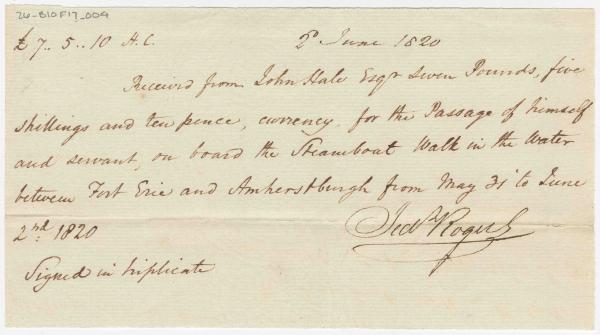 26-B10F17_004
£ 7.. 5.. 10 H.C. 2d June 1820
Received from John Hale Esqr seven Pounds, five
shillings and ten pence, currency, for the Passage of himself
and servant, on board the Steamboat Walk in the Water
between Fort Erie and Amherstburgh from May 31st to June
2nd 1820
Jedh Rogers
Signed in triplicate